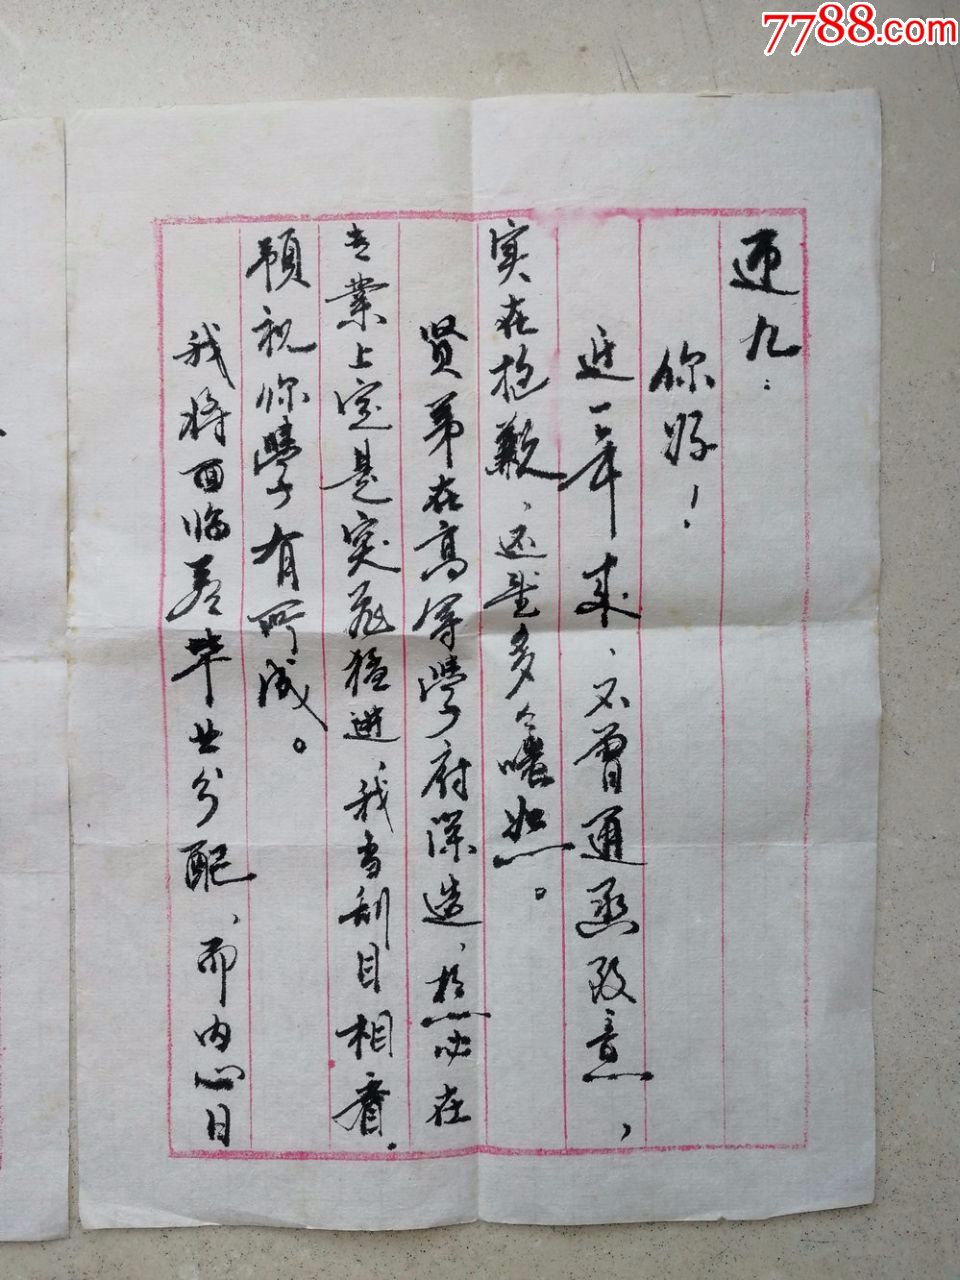 7788.com
九：
你好！
近一年来、不曾通函致意，
实在抱歉、还望多多恕。
贤弟在高等學府深造、想必在
专業上定是突飞猛进、我当刮目相看.
预祝你學有所成。
我将面临着毕业分配、而内心日